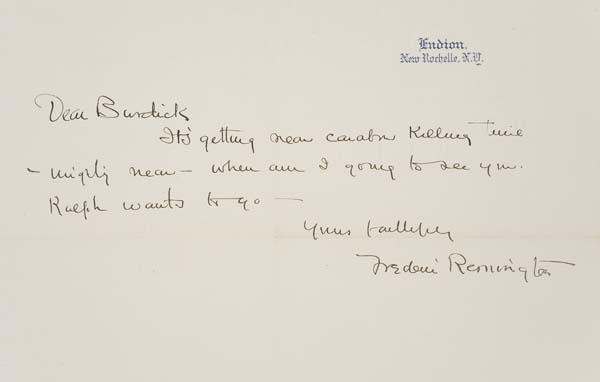 Endion.
New Rochelle, N.Y.
Dear Burdick
It's getting near Killing time
- mighty near - when am I going to see you.
Ralph wants to go -
Yours faithfully
Frederic Remington